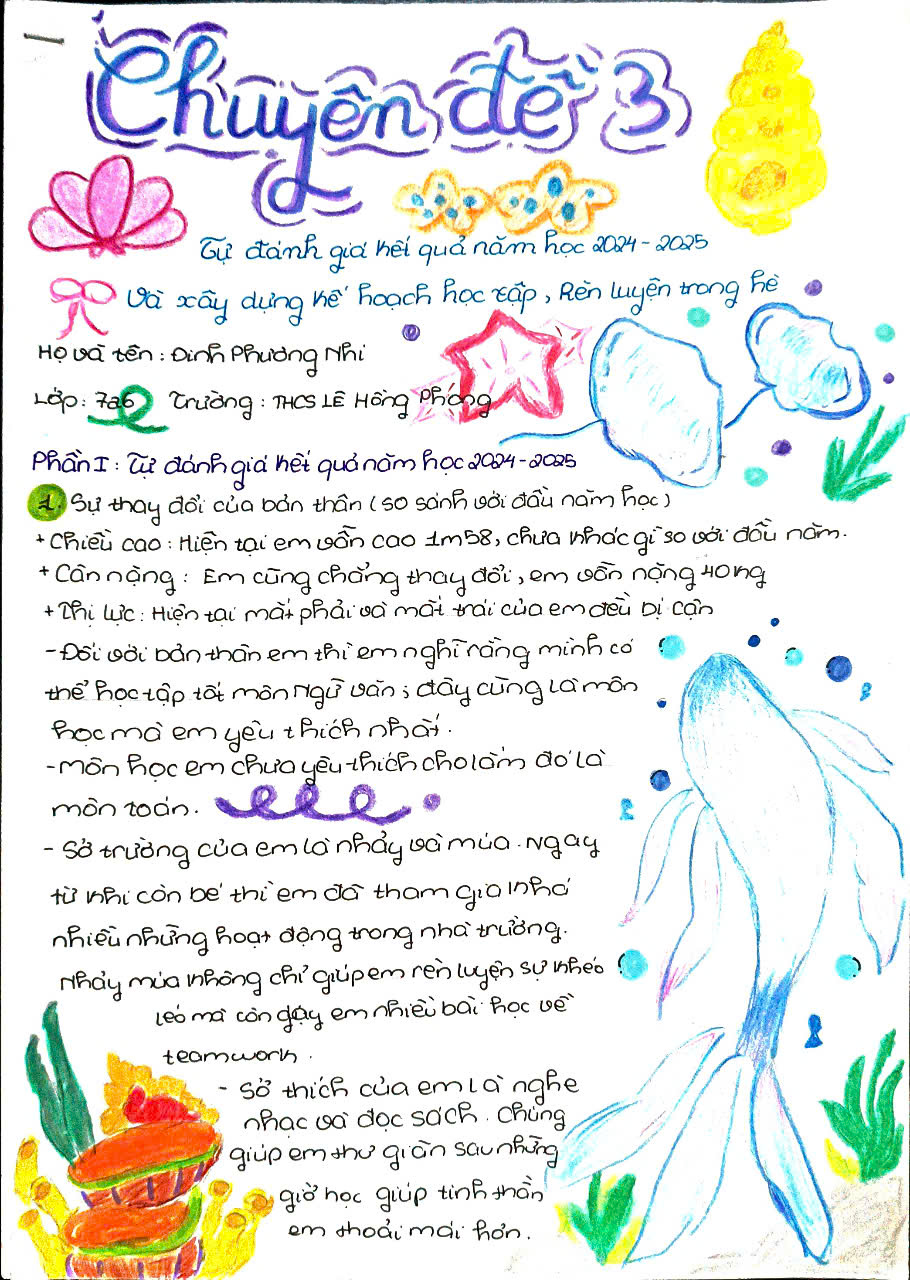 Chuyên đề 3
Tự đánh giá kết quả năm học 2024-2025
Và xây dựng kế hoạch học tập, Rèn luyện trong hè
Họ và tên: Đinh Phương Nhi
Lớp: 7a6 Trường: THCS LÊ Hồng Phong
Phần I: Tự đánh giá kết quả năm học 2024-2025
1. Sự thay đổi của bản thân (so sánh với đầu năm học)
+ Chiều cao: Hiện tại em vẫn cao 1m58, chưa khác gì so với đầu năm.
+ Cân nặng: Em cũng chẳng thay đổi, em vẫn nặng 40kg
+ Thị lực: Hiện tại mắt phải và mắt trái của em đều bị cận
- Đối với bản thân em thì em nghĩ rằng mình có
thể học tập tốt môn Ngữ văn; đây cũng là môn
học mà em yêu thích nhất.
- môn học em chưa yêu thích cho lắm đó là
môn toán.
- Sở trường của em là nhảy và múa. Ngay
từ khi còn bé thì em đã tham gia khá
nhiều những hoạt động trong nhà trường.
Nhảy múa không chỉ giúp em rèn luyện sự khéo
léo mà còn dạy em nhiều bài học về
teamwork.
- Sở thích của em là nghe
nhạc và đọc sách. Chúng
giúp em thư giãn sau những
giờ học giúp tinh thần
em thoải mái hơn.